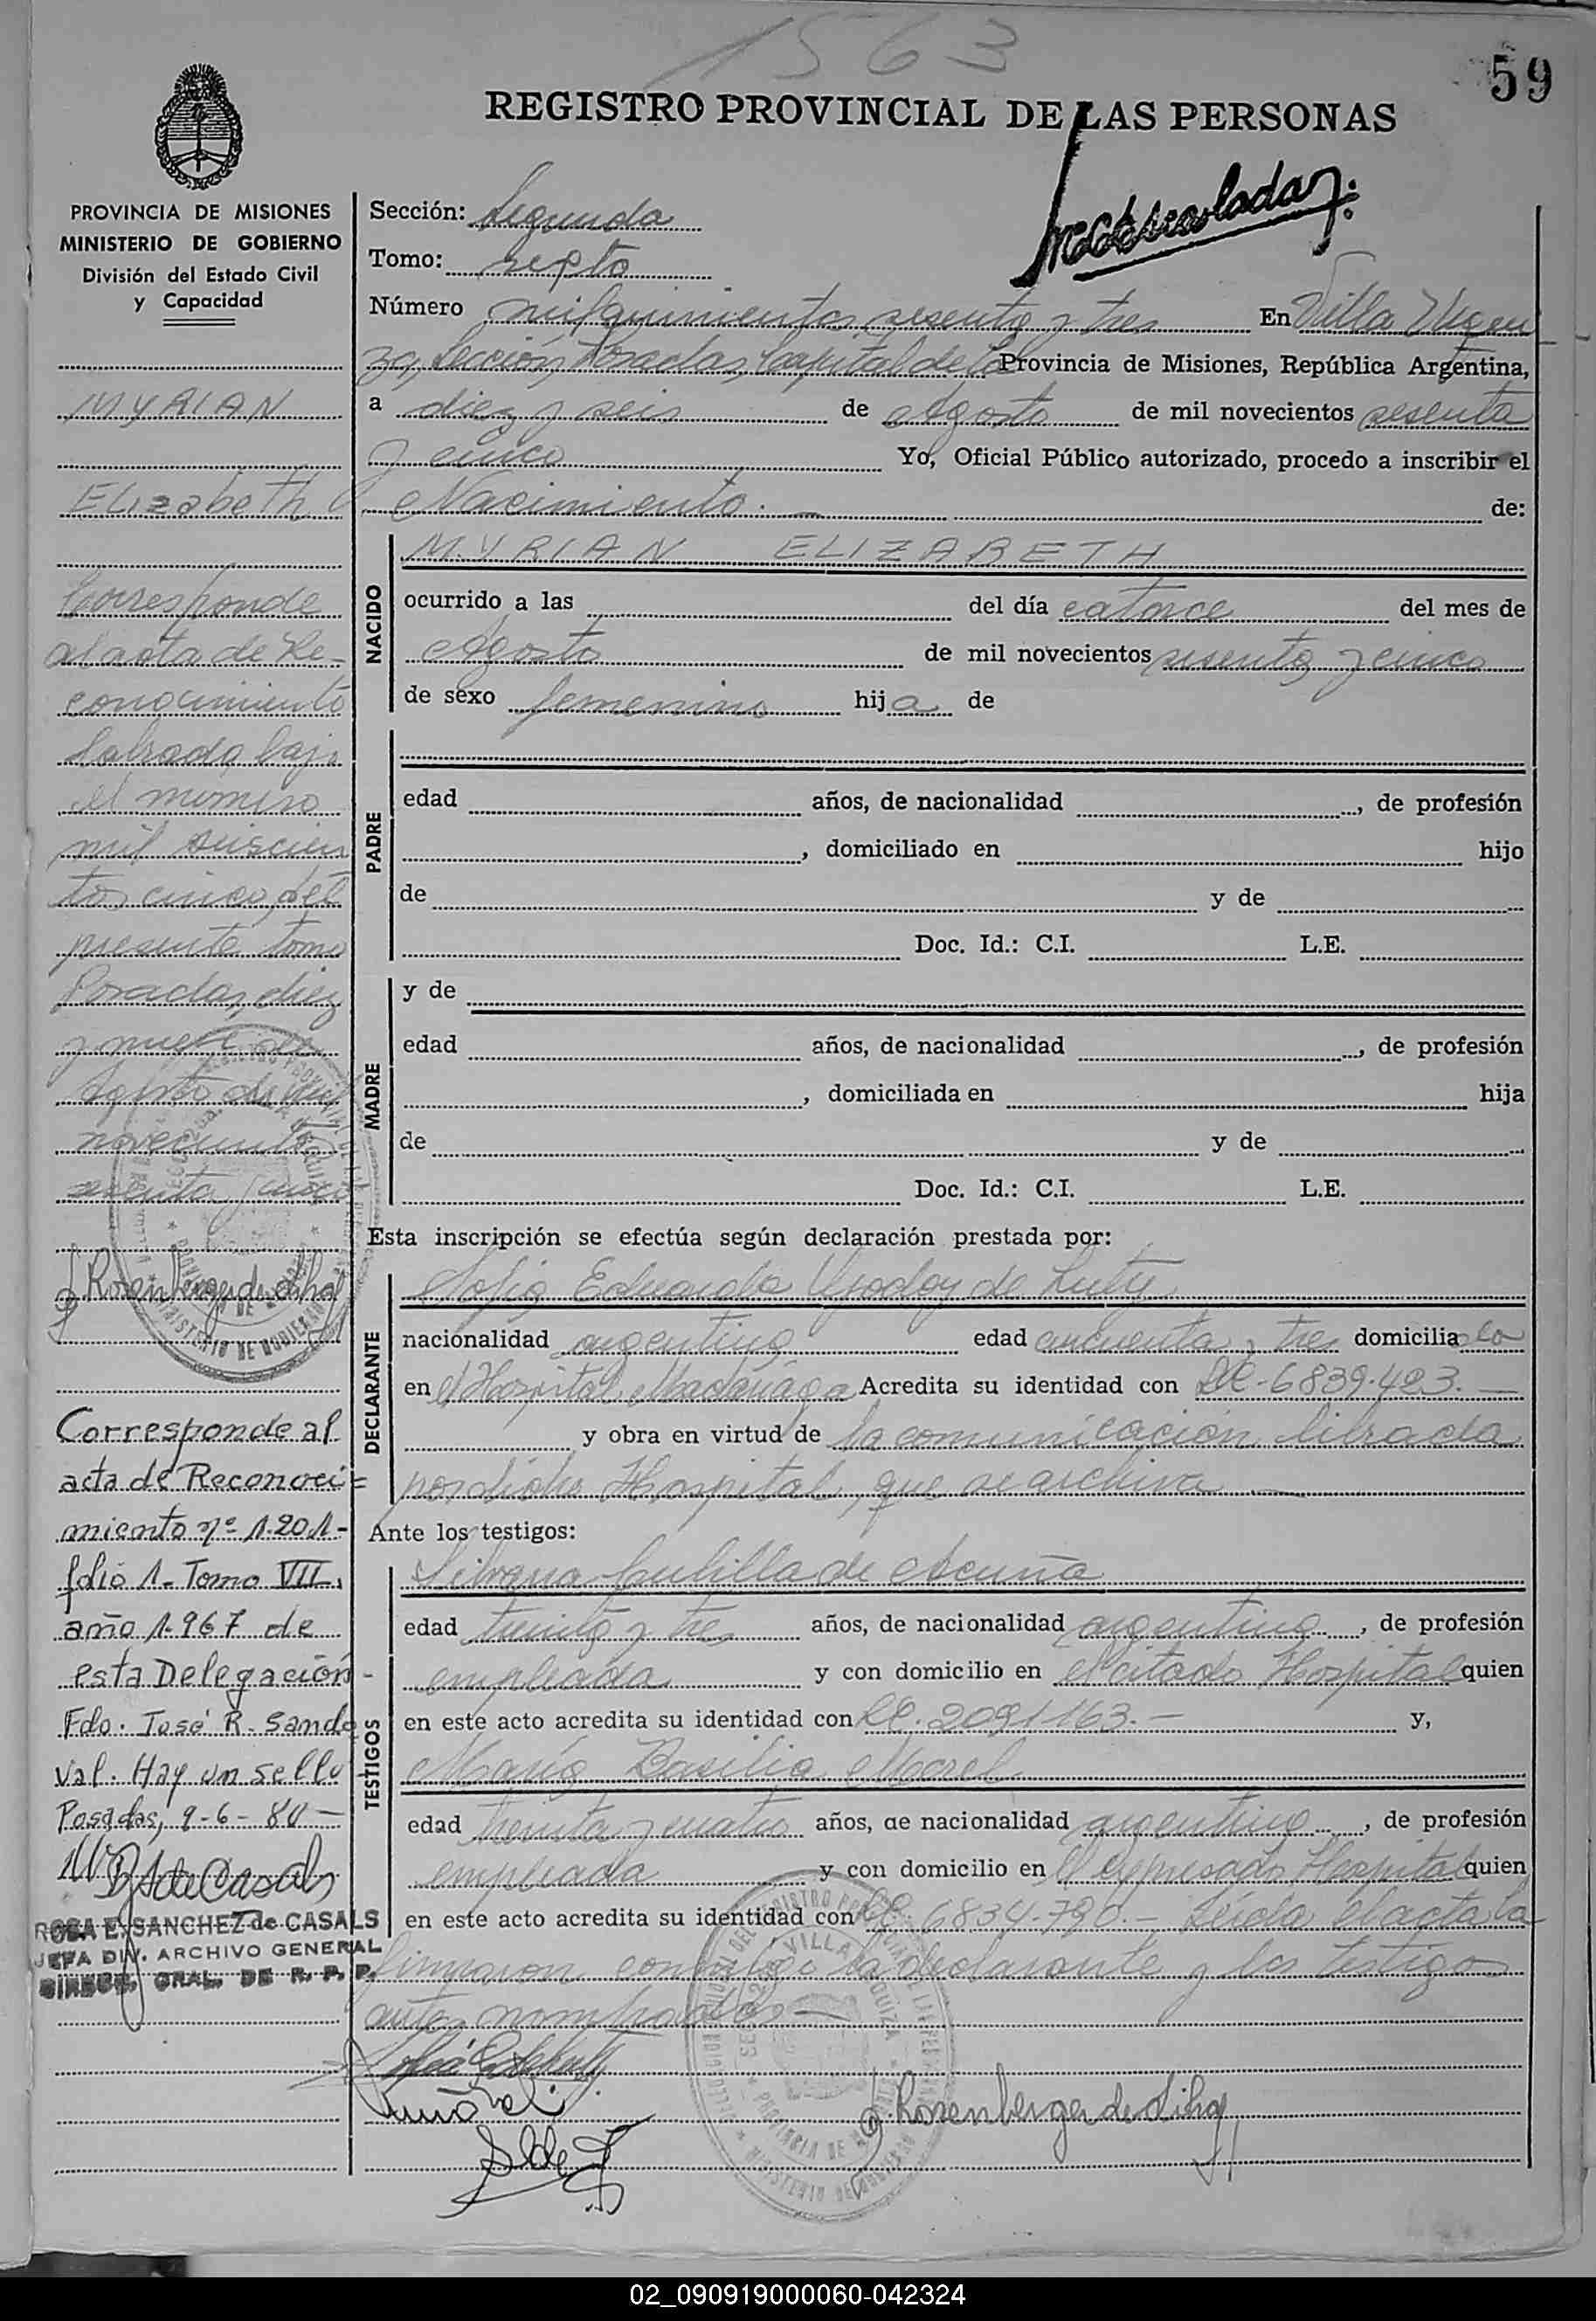 1563
59
REGISTRO PROVINCIAL DE LAS PERSONAS
PROVINCIA DE MISIONES
MINISTERIO DE GOBIERNO
División del Estado Civil
y Capacidad
MYRIAN
Elizabeth
Corresponde
al acta de Re-
conocimiento
labrada bajo
el número
mil seiscien
tos cinco, del
presente tomo
Posadas, diez
y nueve de
Agosto de mil
novecientos
sesenta y cinco
Corresponde al
acta de Reconoci=
miento nº 1.201-
folio 1- Tomo VII,
año 1.967 de
esta Delegación-
Fdo. José R. Sando
val. Hay un sello
Posadas, 9-6-80-
ROSA E. SANCHEZ de CASALS
JEFA DIV. ARCHIVO GENERAL
GRAL. DE R. P. P.
Sección: Segunda
Tomo: sexto
Número mil quinientos sesenta y tres En Villa Urqui
za, Sección, Posadas, Capital de la Provincia de Misiones, República Argentina,
a diez y seis de Agosto de mil novecientos sesenta
y cinco Yo, Oficial Público autorizado, procedo a inscribir el
Nacimiento.- de:
NACIDO
MYRIAN ELIZABETH
ocurrido a las del día catorce del mes de
Agosto de mil novecientos sesenta y cinco
de sexo femenino hija de
PADRE
edad años, de nacionalidad , de profesión
, domiciliado en hijo
de y de
Doc. Id.: C.I. L.E.
MADRE
y de
edad años, de nacionalidad , de profesión
, domiciliada en hija
de y de
Doc. Id.: C.I. L.E.
Esta inscripción se efectúa según declaración prestada por:
DECLARANTE
Sofia Eduarda Godoy de
nacionalidad argentina edad cincuenta y tres domiciliada
en el Hospital Madariaga Acredita su identidad con LC-6839.423.-
y obra en virtud de la comunicación librada
por dicho Hospital, que se archiva-
Ante los testigos:
TESTIGOS
de Acuña
edad treinta y tres años, de nacionalidad argentina, de profesión
empleada y con domicilio en el citado Hospital quien
en este acto acredita su identidad con LC. 2091163.- y,
María Basilia Morel
edad treinta y cuatro años, de nacionalidad argentina, de profesión
empleada y con domicilio en el expresado Hospital quien
en este acto acredita su identidad con LC. 6834.790.- Leída el acta la
firmaron conmigo la declarante y los testigos
antes nombrados-
02_090919000060-042324